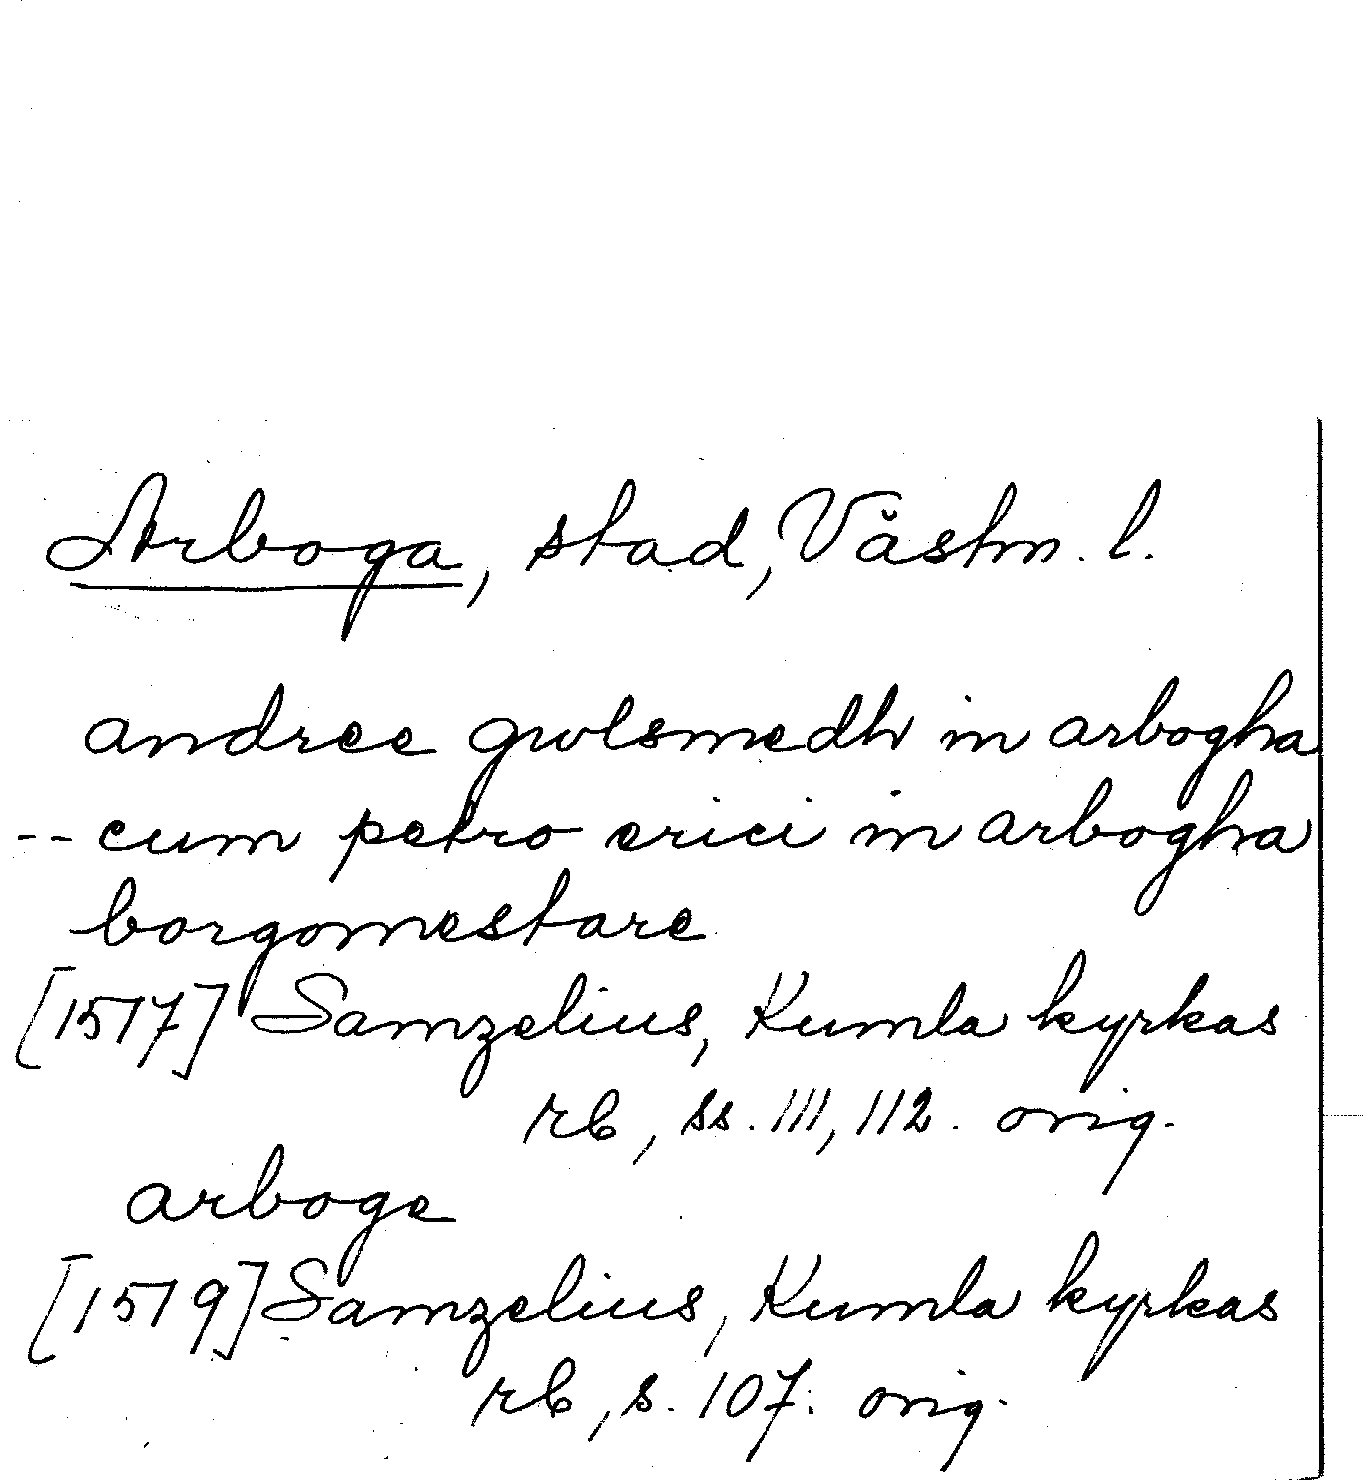 Arboga, stad, Västm. l.
andree gwlsmedh in arbogha
-- cum petro erici in arbogha
borgomestare
[1517] Samzelius, Kumla kyrkas
rb, ss. 111, 112. orig.
arboge
[1519] Samzelius, Kumla kyrkas
rb, s. 107. orig.